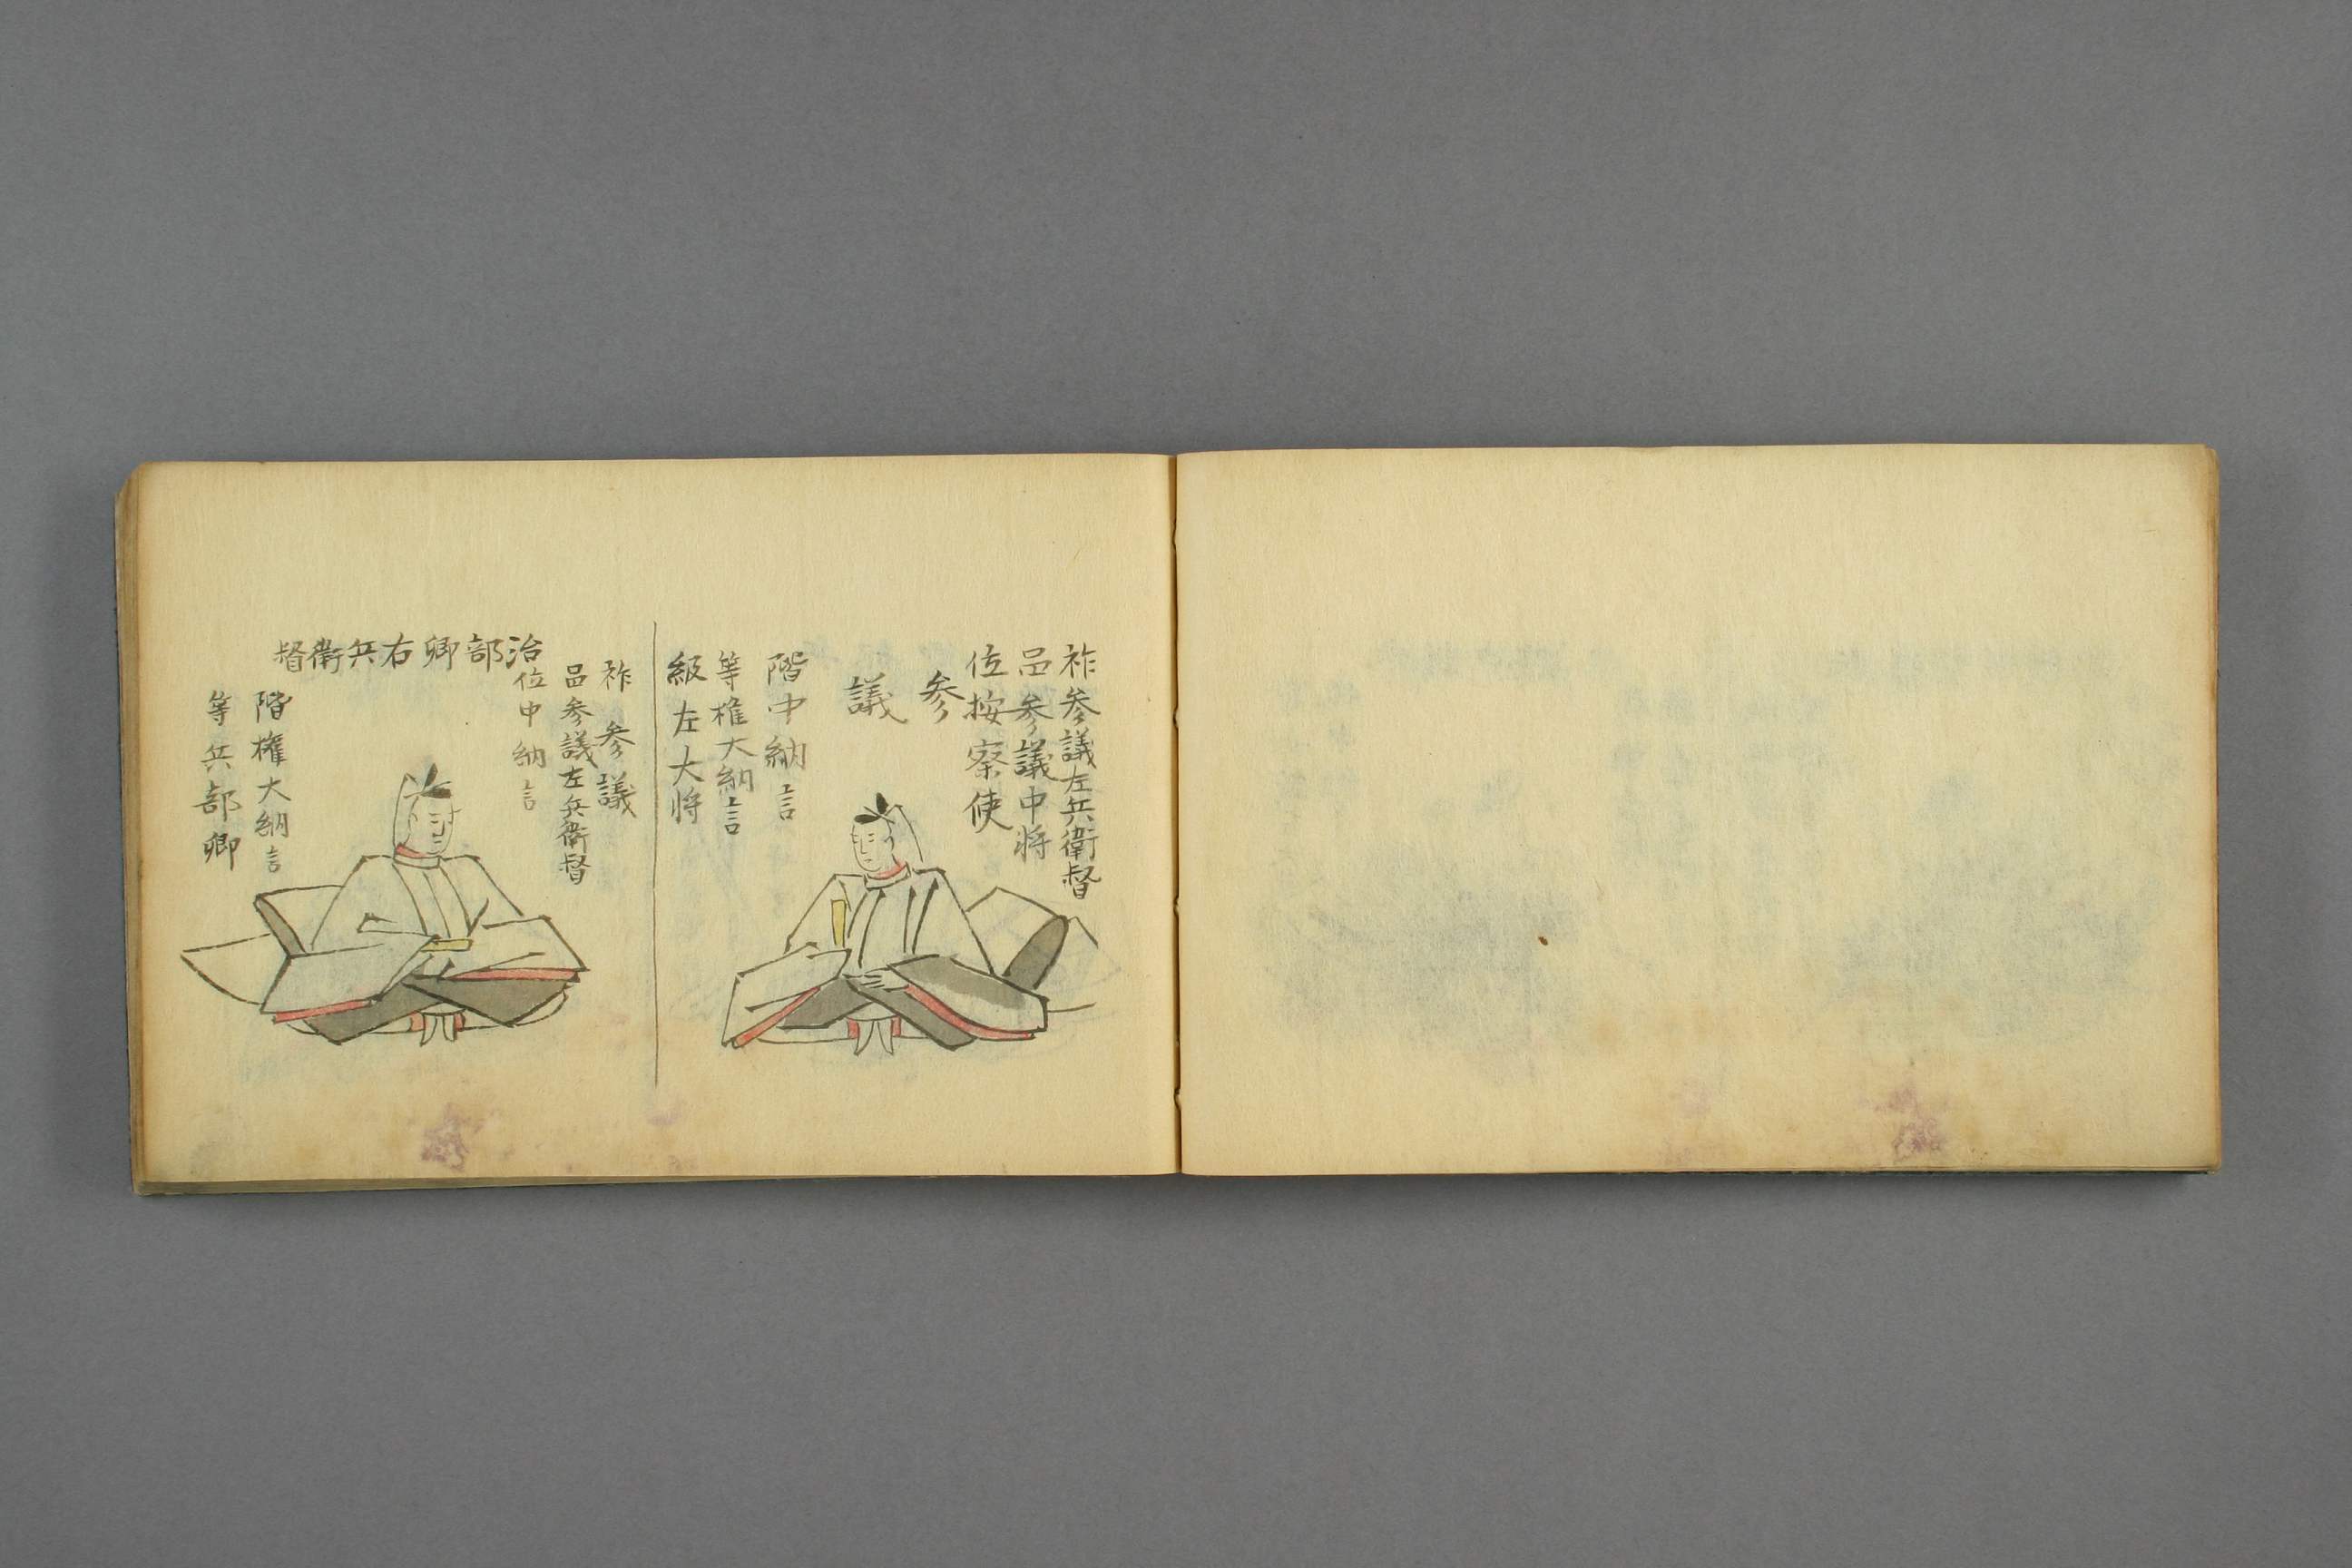 祚参議左兵衛督
品参議中将
位按察使
参議
階中納言
等権大納言
級左大将
祚参議
品参議左兵衛督
位中納言
治部卿右兵衛督
階権大納言
等兵部卿